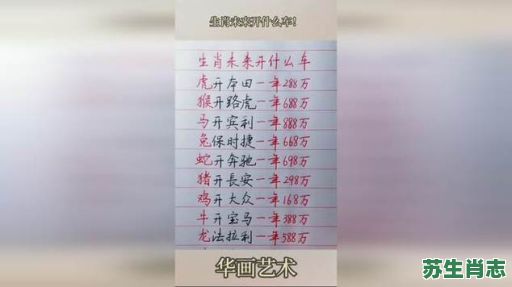 生肖未来开什么车!
生肖未来开什么车
虎开本田一年288万
猴开路虎一年688万
马开宾利一年888万
兔保时捷一年668万
蛇开奔驰一年698万
猪开長安一年298万
鸡开大众一年168万
牛开宝马一年388万
龙法拉利一年588万
华画艺术
苏生肖志